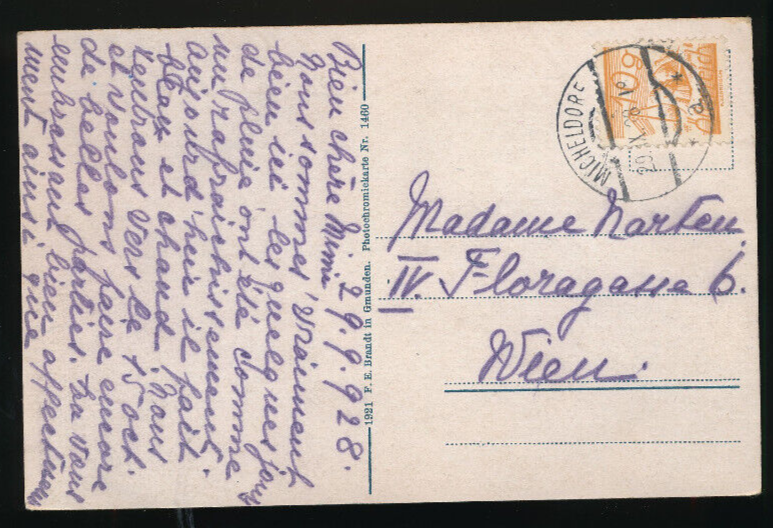 Bien chère Mimi 29.9.928.
Nous sommes vraiment
bien ici les quelques jours
de pluie ont été comme
un rafraichissement,
aujourd'hui il fait
beau et chaud. Nous
rentrons vers le 15 oct.
et voulons faire encore
de belles parties. En vous
embrassant bien affectueuse
ment ainsi que
1921 F. E. Brandt in Gmunden. Photochromiekarte Nr. 1460
MICHELDORF
29. IX. 28
a
10g
Madame Marten
IV. Floragasse 6.
Wien.